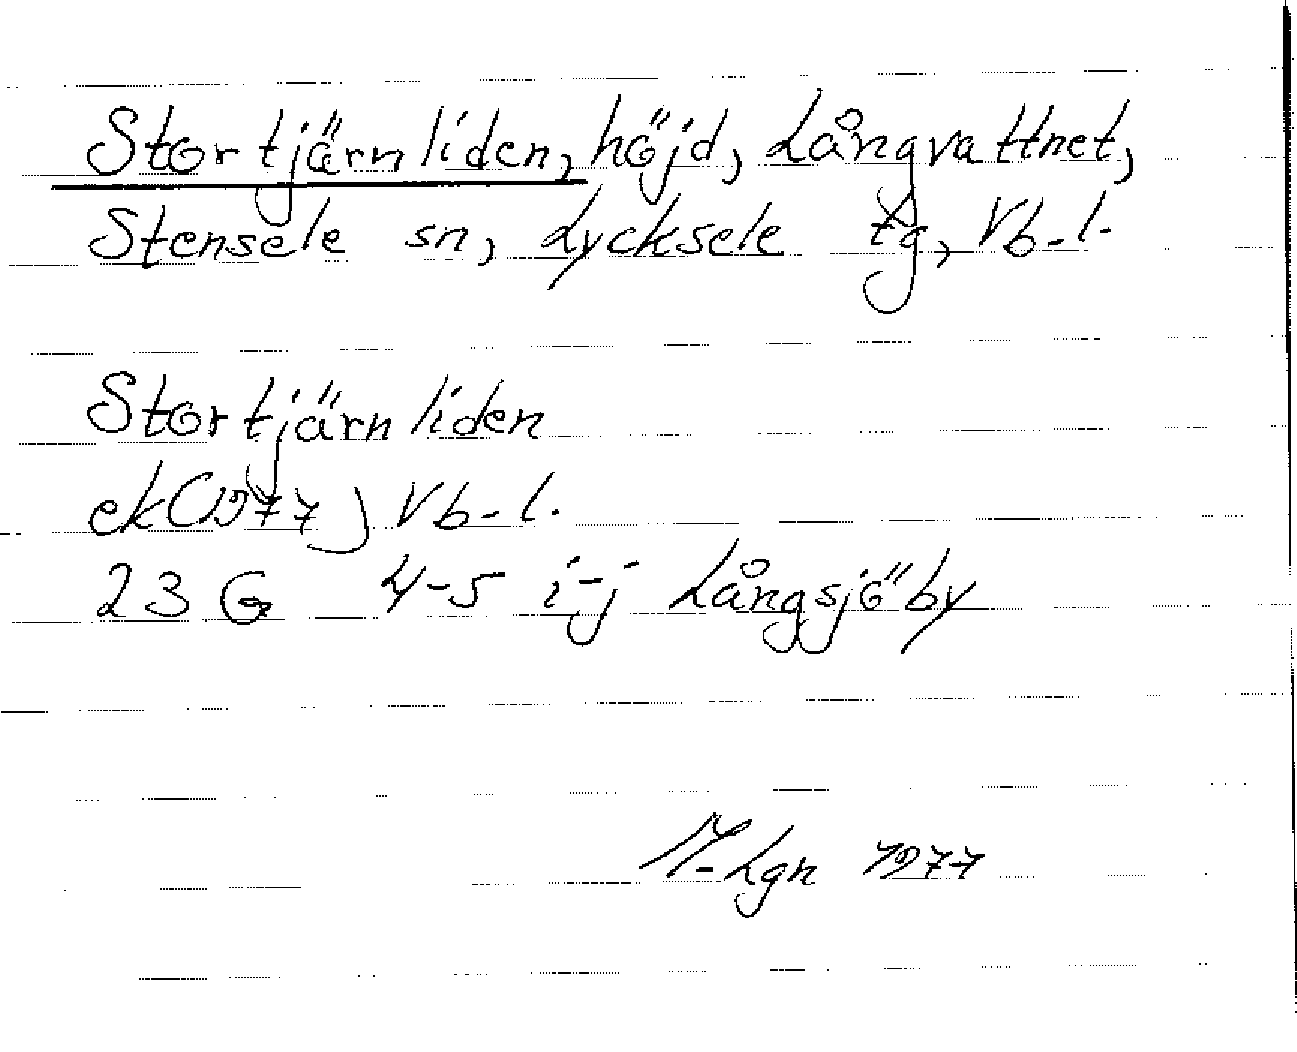 Stortjärnliden, höjd, Långvattnet,
Stensele sn, Lycksele tg, Vb-l.
Stortjärnliden
ek (1977) Vb-l.
23 G 4-5 i-j Långsjöby
M-Lgn 1977